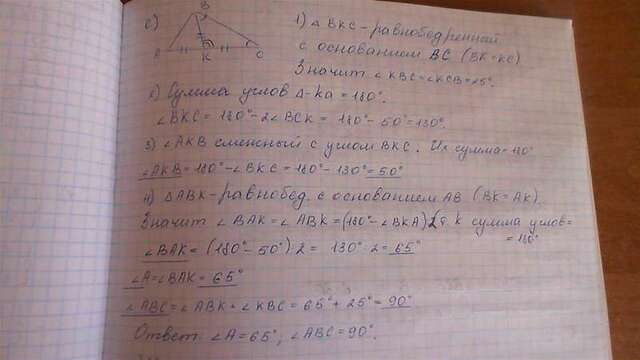 B
K
C
1) △ BKC - равнобедренный
с основанием BC (BK=KC)
Значит ∠KBC=∠KCB=25°.
2) Сумма углов △-ка = 180°.
∠BKC = 180° - 2∠BCK = 180° - 50° = 130°.
3) ∠AKB смежный с углом BKC. Их сумма = 180°
∠AKB = 180° - ∠BKC = 180° - 130° = 50°
4) △ABK - равнобед. с основанием AB (BK=AK).
Значит ∠BAK = ∠ABK = (180° - ∠BKA):2 т.к сумма углов =
= 180°
∠BAK = (180° - 50°):2 = 130°:2 = 65°
∠A = ∠BAK = 65°
∠ABC = ∠ABK + ∠KBC = 65° + 25° = 90°
Ответ: ∠A = 65°, ∠ABC = 90°.